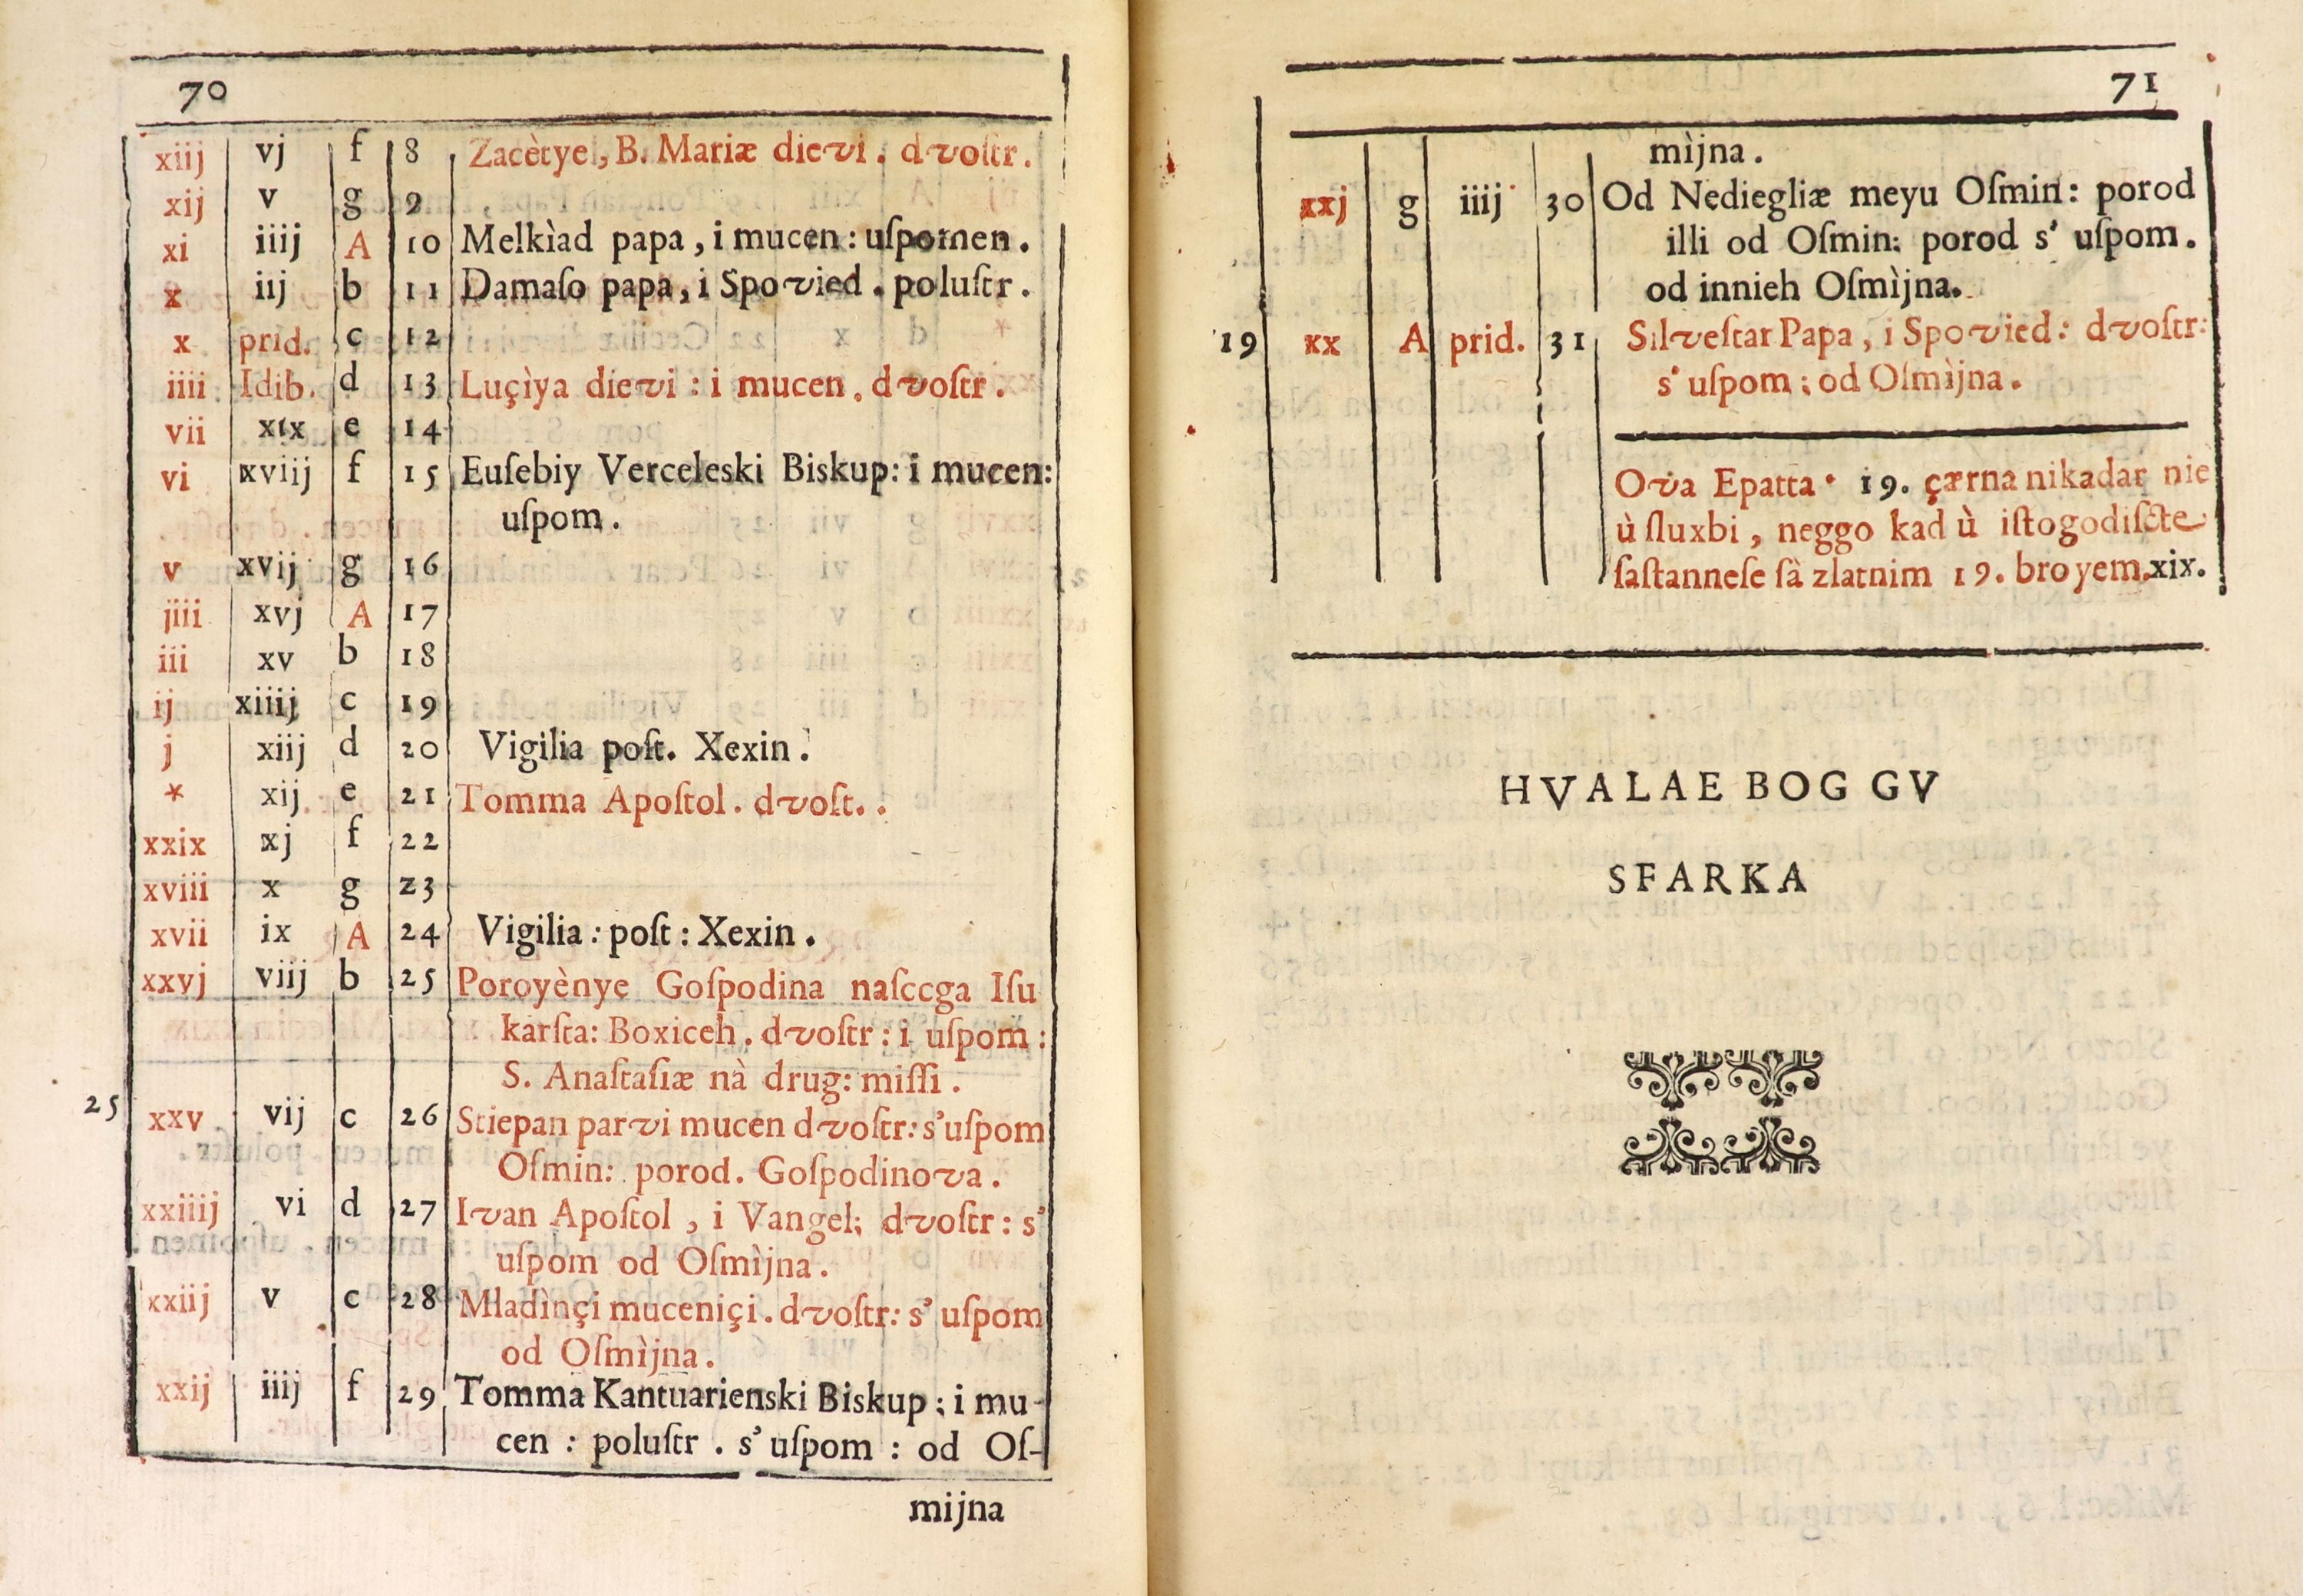 70
xiij vj f 8 Zacètye, B. Mariæ dievi. dvoſtr.
xij v g 9
xi iiij A 10 Melkìad papa, i mucen: uſpomen.
x iij b 11 Damaſo papa, i Spovied. poluſtr.
x prid. c 12
iiii Idib. d 13 Luçìya dievi: i mucen. dvoſtr.
vii xix e 14
vi xviij f 15 Euſebiy Verceleski Biskup: i mucen:
uſpom.
v xvij g 16
jiii xvj A 17
iii xv b 18
ij xiiij c 19
j xiij d 20 Vigilia poſt. Xexin.
* xij e 21 Tomma Apoſtol. dvoſt..
xxix xj f 22
xviii x g 23
xvii ix A 24 Vigilia: poſt: Xexin.
xxvj viij b 25 Poroyènye Goſpodina naſccga Iſu
karſta: Boxiceh. dvoſtr: i uſpom:
S. Anaſtaſiæ nà drug: miſſi.
25 xxv vij c 26 Stiepan parvi mucen dvoſtr: s'uſpom
Oſmin: porod. Goſpodinova.
xxiiij vi d 27 Ivan Apoſtol, i Vangel: dvoſtr: s'
uſpom od Oſmìjna.
xxiij v c 28 Mladìnçi muceniçi. dvoſtr: s' uſpom
od Oſmìjna.
xxij iiij f 29 Tomma Kantuarienski Biskup: i mu-
cen: poluſtr. s' uſpom: od Oſ-
mijna
71
mìjna.
xxj g iiij 30 Od Nediegliæ meyu Oſmin: porod
illi od Oſmin: porod s' uſpom.
od innieh Oſmìjna.
19 xx A prid. 31 Silveſtar Papa, i Spovied: dvoſtr:
s' uſpom: od Oſmìjna.
Ova Epatta 19. çærna nikadar nie
ù ſluxbi, neggo kad ù iſtogodiſcte
ſaſtanneſe ſà zlatnim 19. broyem. xix.
HVALAE BOG GV
SFARKA